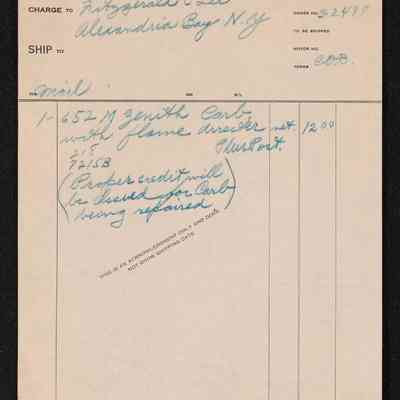 CHARGE TO Fitzgerald & Lee
Alexandria Bay N.Y
ORDER NO. 32499
TO BE SHIPPED
SHIP TO:
MOTOR NO.
TERMS C.O.D.
VIA mail
1- 652 M Zenith Carb
with flame director net. 12 00
Plus Post.
(Proper credit will
be issued for Carb
being repaired)
THIS IS AN ACKNOWLEDGMENT ONLY AND DOES
NOT SHOW SHIPPING DATE